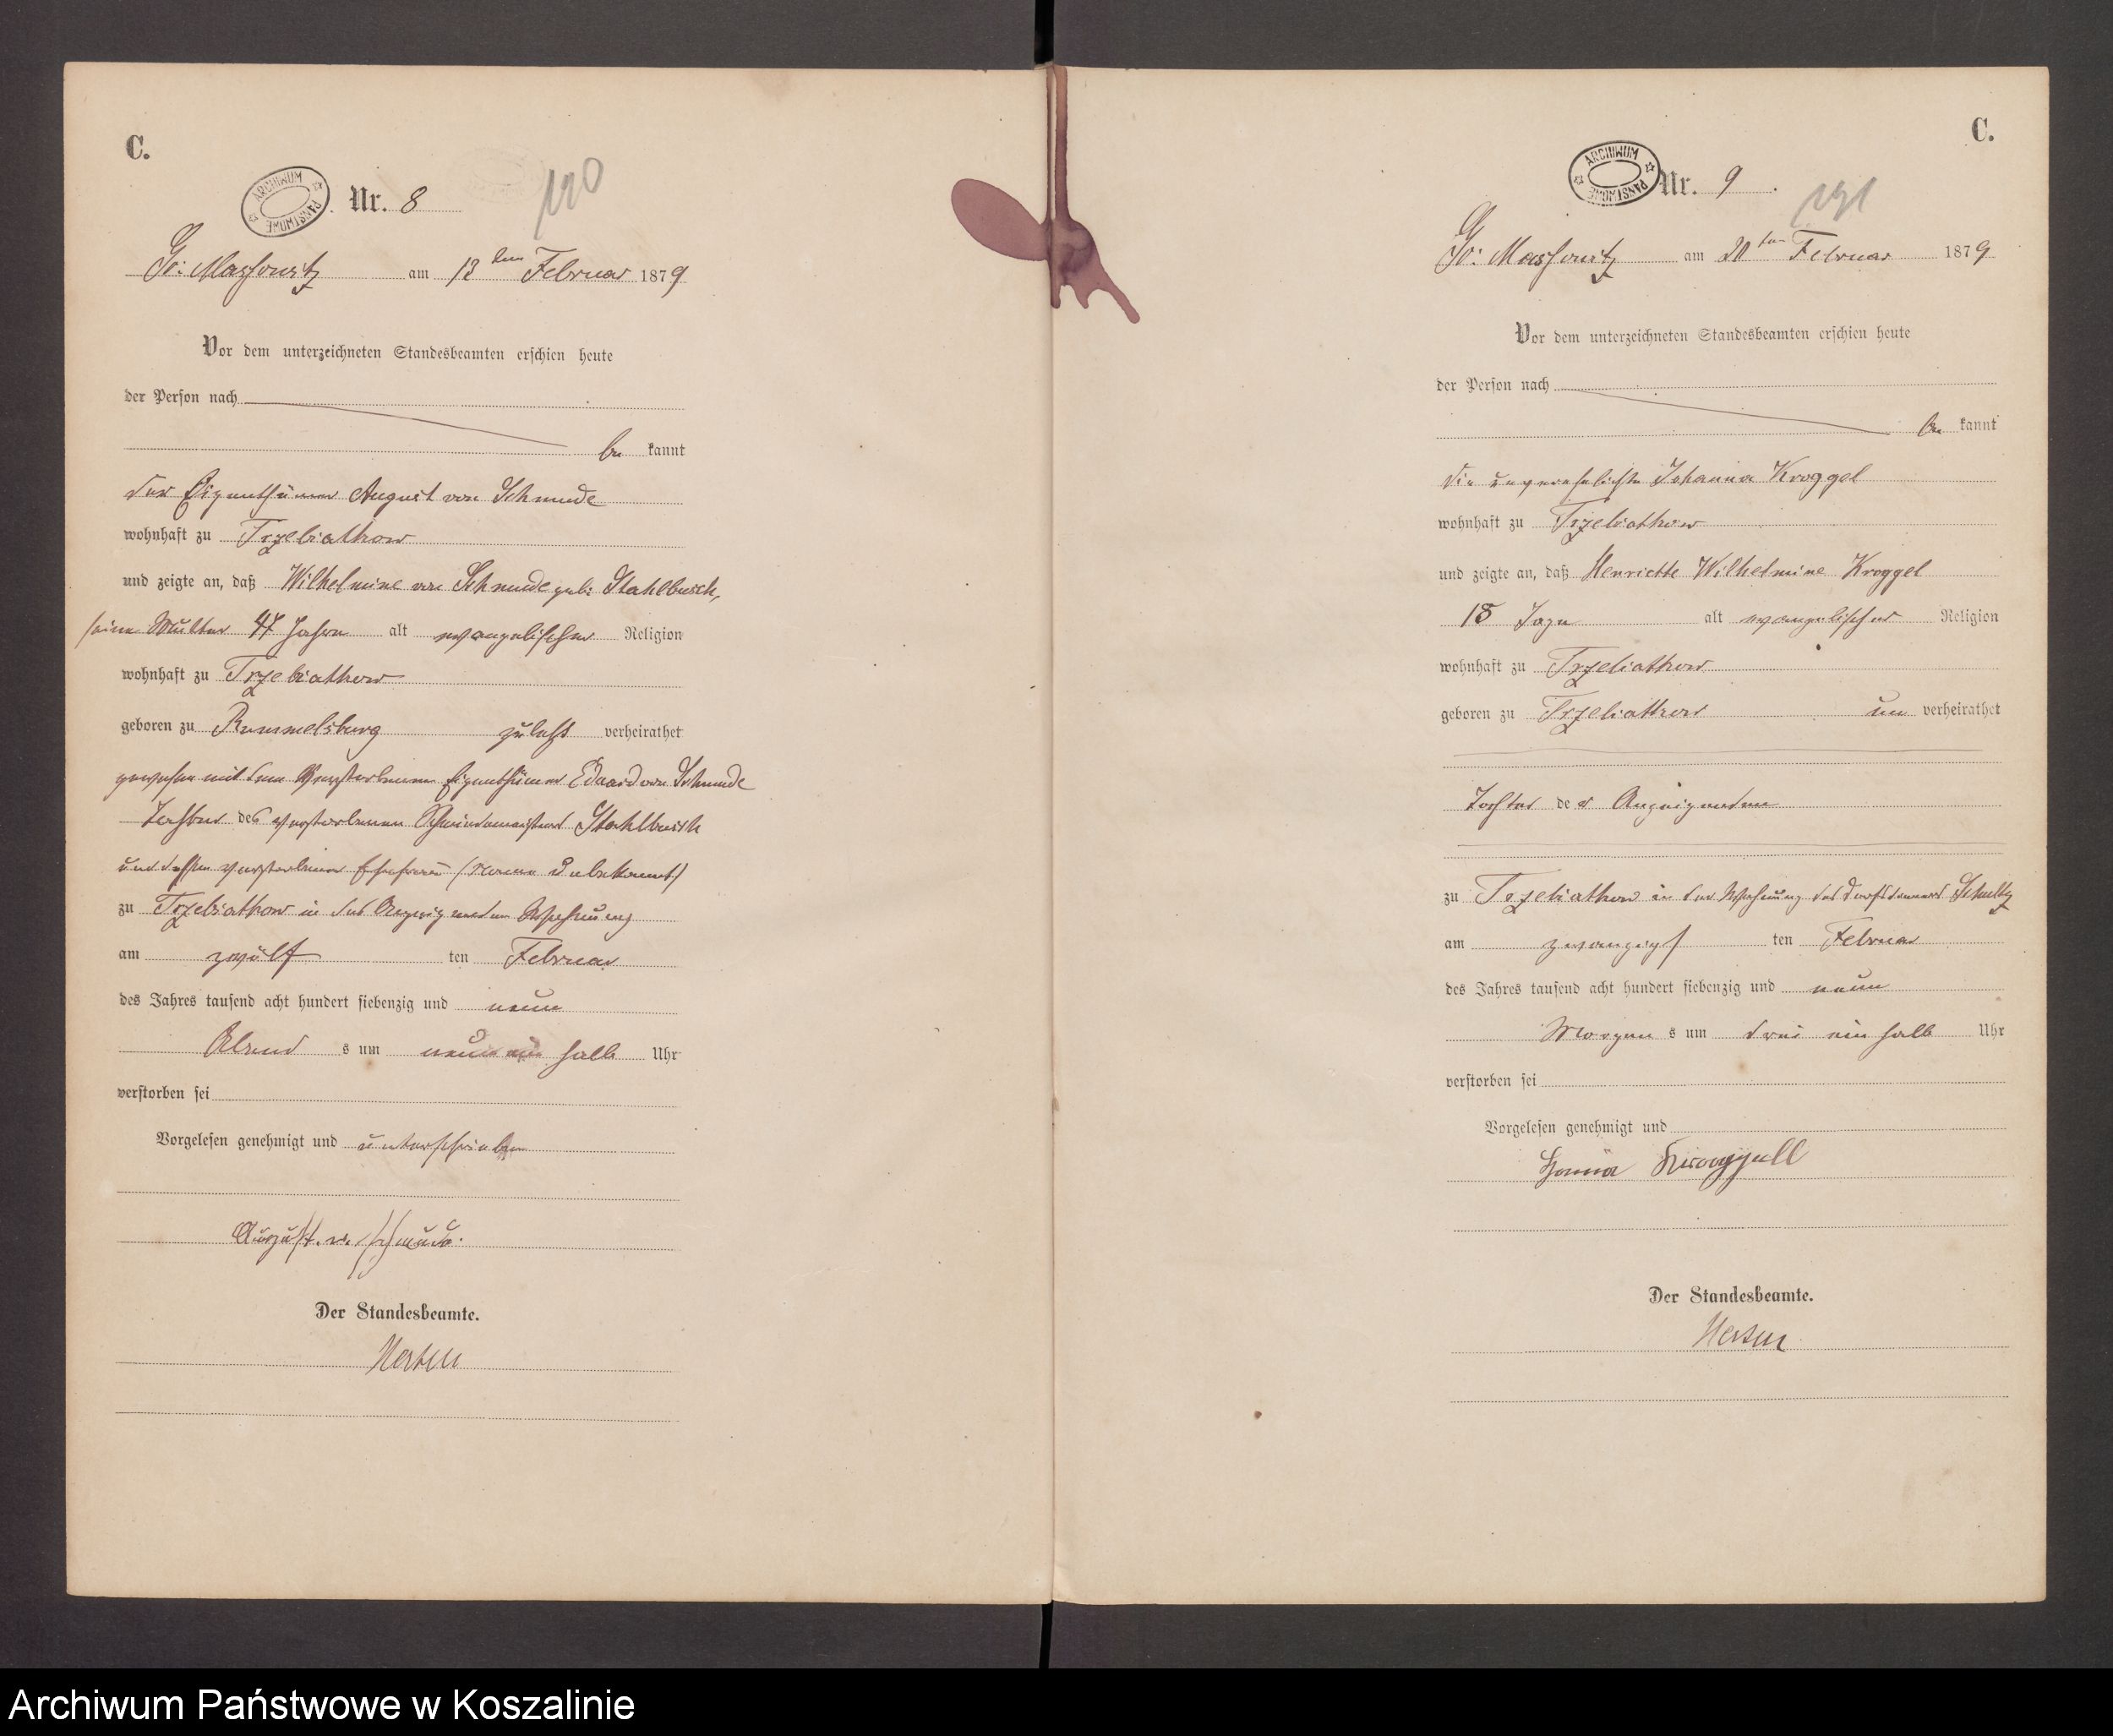 C.
ARCHIWUM PAŃSTWOWE
Nr. 8
120
Gr: Massowitz am 13 ten Februar 1879
Vor dem unterzeichneten Standesbeamten erschien heute
der Person nach
be kannt
der Eigenthümer August von Schmude
wohnhaft zu Trzebiatkow
und zeigte an, daß Wilhelmine von Schmude geb: Stahlbusch,
seine Mutter 47 Jahre alt evangelischer Religion
wohnhaft zu Trzebiatkow
geboren zu Rummelsburg zuletzt verheirathet
gewesen mit dem verstorbenen Eigenthümer Eduard von Schmude
Tochter des verstorbenen Schneidermeisters Stahlbusch
und dessen verstorbener Ehefrau (Name unbekannt)
zu Trzebiatkow in des Anzeigenden Wohnung
am zwölf ten Februar
des Jahres tausend acht hundert siebenzig und neun
Abend s um neun ein halb Uhr
verstorben sei
Vorgelesen genehmigt und unterschrieben
August v. Schmude.
Der Standesbeamte.
C.
ARCHIWUM PAŃSTWOWE
Nr. 9
121
Gr: Massowitz am 20 ten Februar 1879
Vor dem unterzeichneten Standesbeamten erschien heute
der Person nach
be kannt
die unverehelichte Johanna Kroggel
wohnhaft zu Trzebiatkow
und zeigte an, daß Henriette Wilhelmine Kroggel
18 Tage alt evangelischer Religion
wohnhaft zu Trzebiatkow
geboren zu Trzebiatkow un verheirathet
Tochter de r Anzeigenden
zu Trzebiatkow in der Wohnung des Schultz
am zwanzigs ten Februar
des Jahres tausend acht hundert siebenzig und neun
Morgen s um drei ein halb Uhr
verstorben sei
Vorgelesen genehmigt und
Kroggell
Der Standesbeamte.
Archiwum Państwowe w Koszalinie